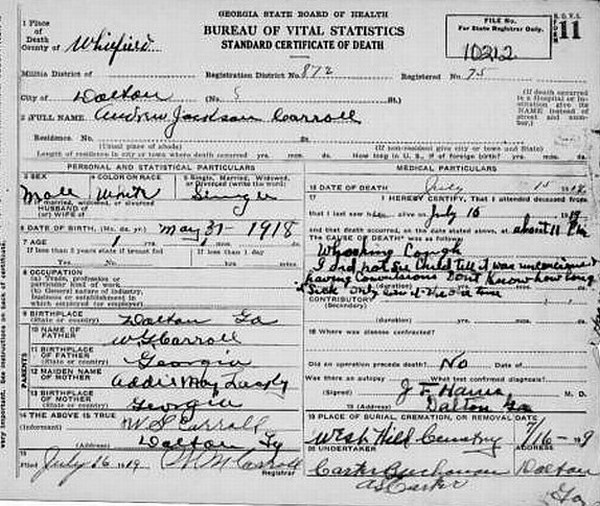 GEORGIA STATE BOARD OF HEALTH
BUREAU OF VITAL STATISTICS
STANDARD CERTIFICATE OF DEATH
FILE No.
For State Registrar Only.
10212
11
1 Place of Death
County of Whitfield
Militia District of Registration District No. 872 Registered No. 75
City of Dalton (No. St.)
(If death occurred in a Hospital or Institution give its NAME instead of street and number.)
2 FULL NAME Andrew Jackson Carroll
Residence No. St.
(Usual place of abode) (If non-resident give city or town and State)
Length of residence in city or town where death occurred yrs. mos. ds. How long in U. S., if of foreign birth? yrs. mos. ds.
PERSONAL AND STATISTICAL PARTICULARS
3 SEX 4 COLOR OR RACE 5 Single, Married, Widowed, or Divorced (write the word)
Male White Single
If married, widowed, or divorced
HUSBAND of
(or) WIFE of
6 DATE OF BIRTH (Mo. da. yr.) May 31 - 1918
7 AGE 1 yrs. 1 mos.
If less than 2 years state if breast fed If less than 1 day
Yes No hrs. Min.
8 OCCUPATION
(a) Trade, profession or particular kind of work
(b) General nature of industry, business or establishment in which employed (or employer)
9 BIRTHPLACE
(State or country) Dalton Ga
PARENTS
10 NAME OF FATHER W S Carroll
11 BIRTHPLACE OF FATHER
(State or country) Georgia
12 MAIDEN NAME OF MOTHER Addie May
13 BIRTHPLACE OF MOTHER
(State or country) Georgia
14 THE ABOVE IS TRUE
(Informant) W. S. Carroll
(Address) Dalton Ga
15
Filed July 16 1919 Carroll
Registrar
MEDICAL PARTICULARS
16 DATE OF DEATH July 15 19
17 I HEREBY CERTIFY, That I attended deceased from
that I last saw h alive on July 15 19
and that death occurred, on the date stated above, at about 11 P m
The CAUSE OF DEATH* was as follows:
Whooping Cough
I did not see Child till it was unconscious &
having Convulsions Dont Know how long
Sick Only saw it the one time
(duration) yrs. mos. ds.
CONTRIBUTORY
(Secondary)
(duration) yrs. mos. ds.
18 Where was disease contracted?
Did an operation precede death? No Date of
Was there an autopsy What test confirmed diagnosis?
(Signed) J. F. Harris M. D.
19 (Address) Dalton Ga
19 PLACE OF BURIAL, CREMATION, OR REMOVAL DATE
West Hill Cemetery 7/16-19
20 UNDERTAKER ADDRESS
Carter Buchanan Dalton
A S Carter Ga
very important. See instructions on back of certificate.